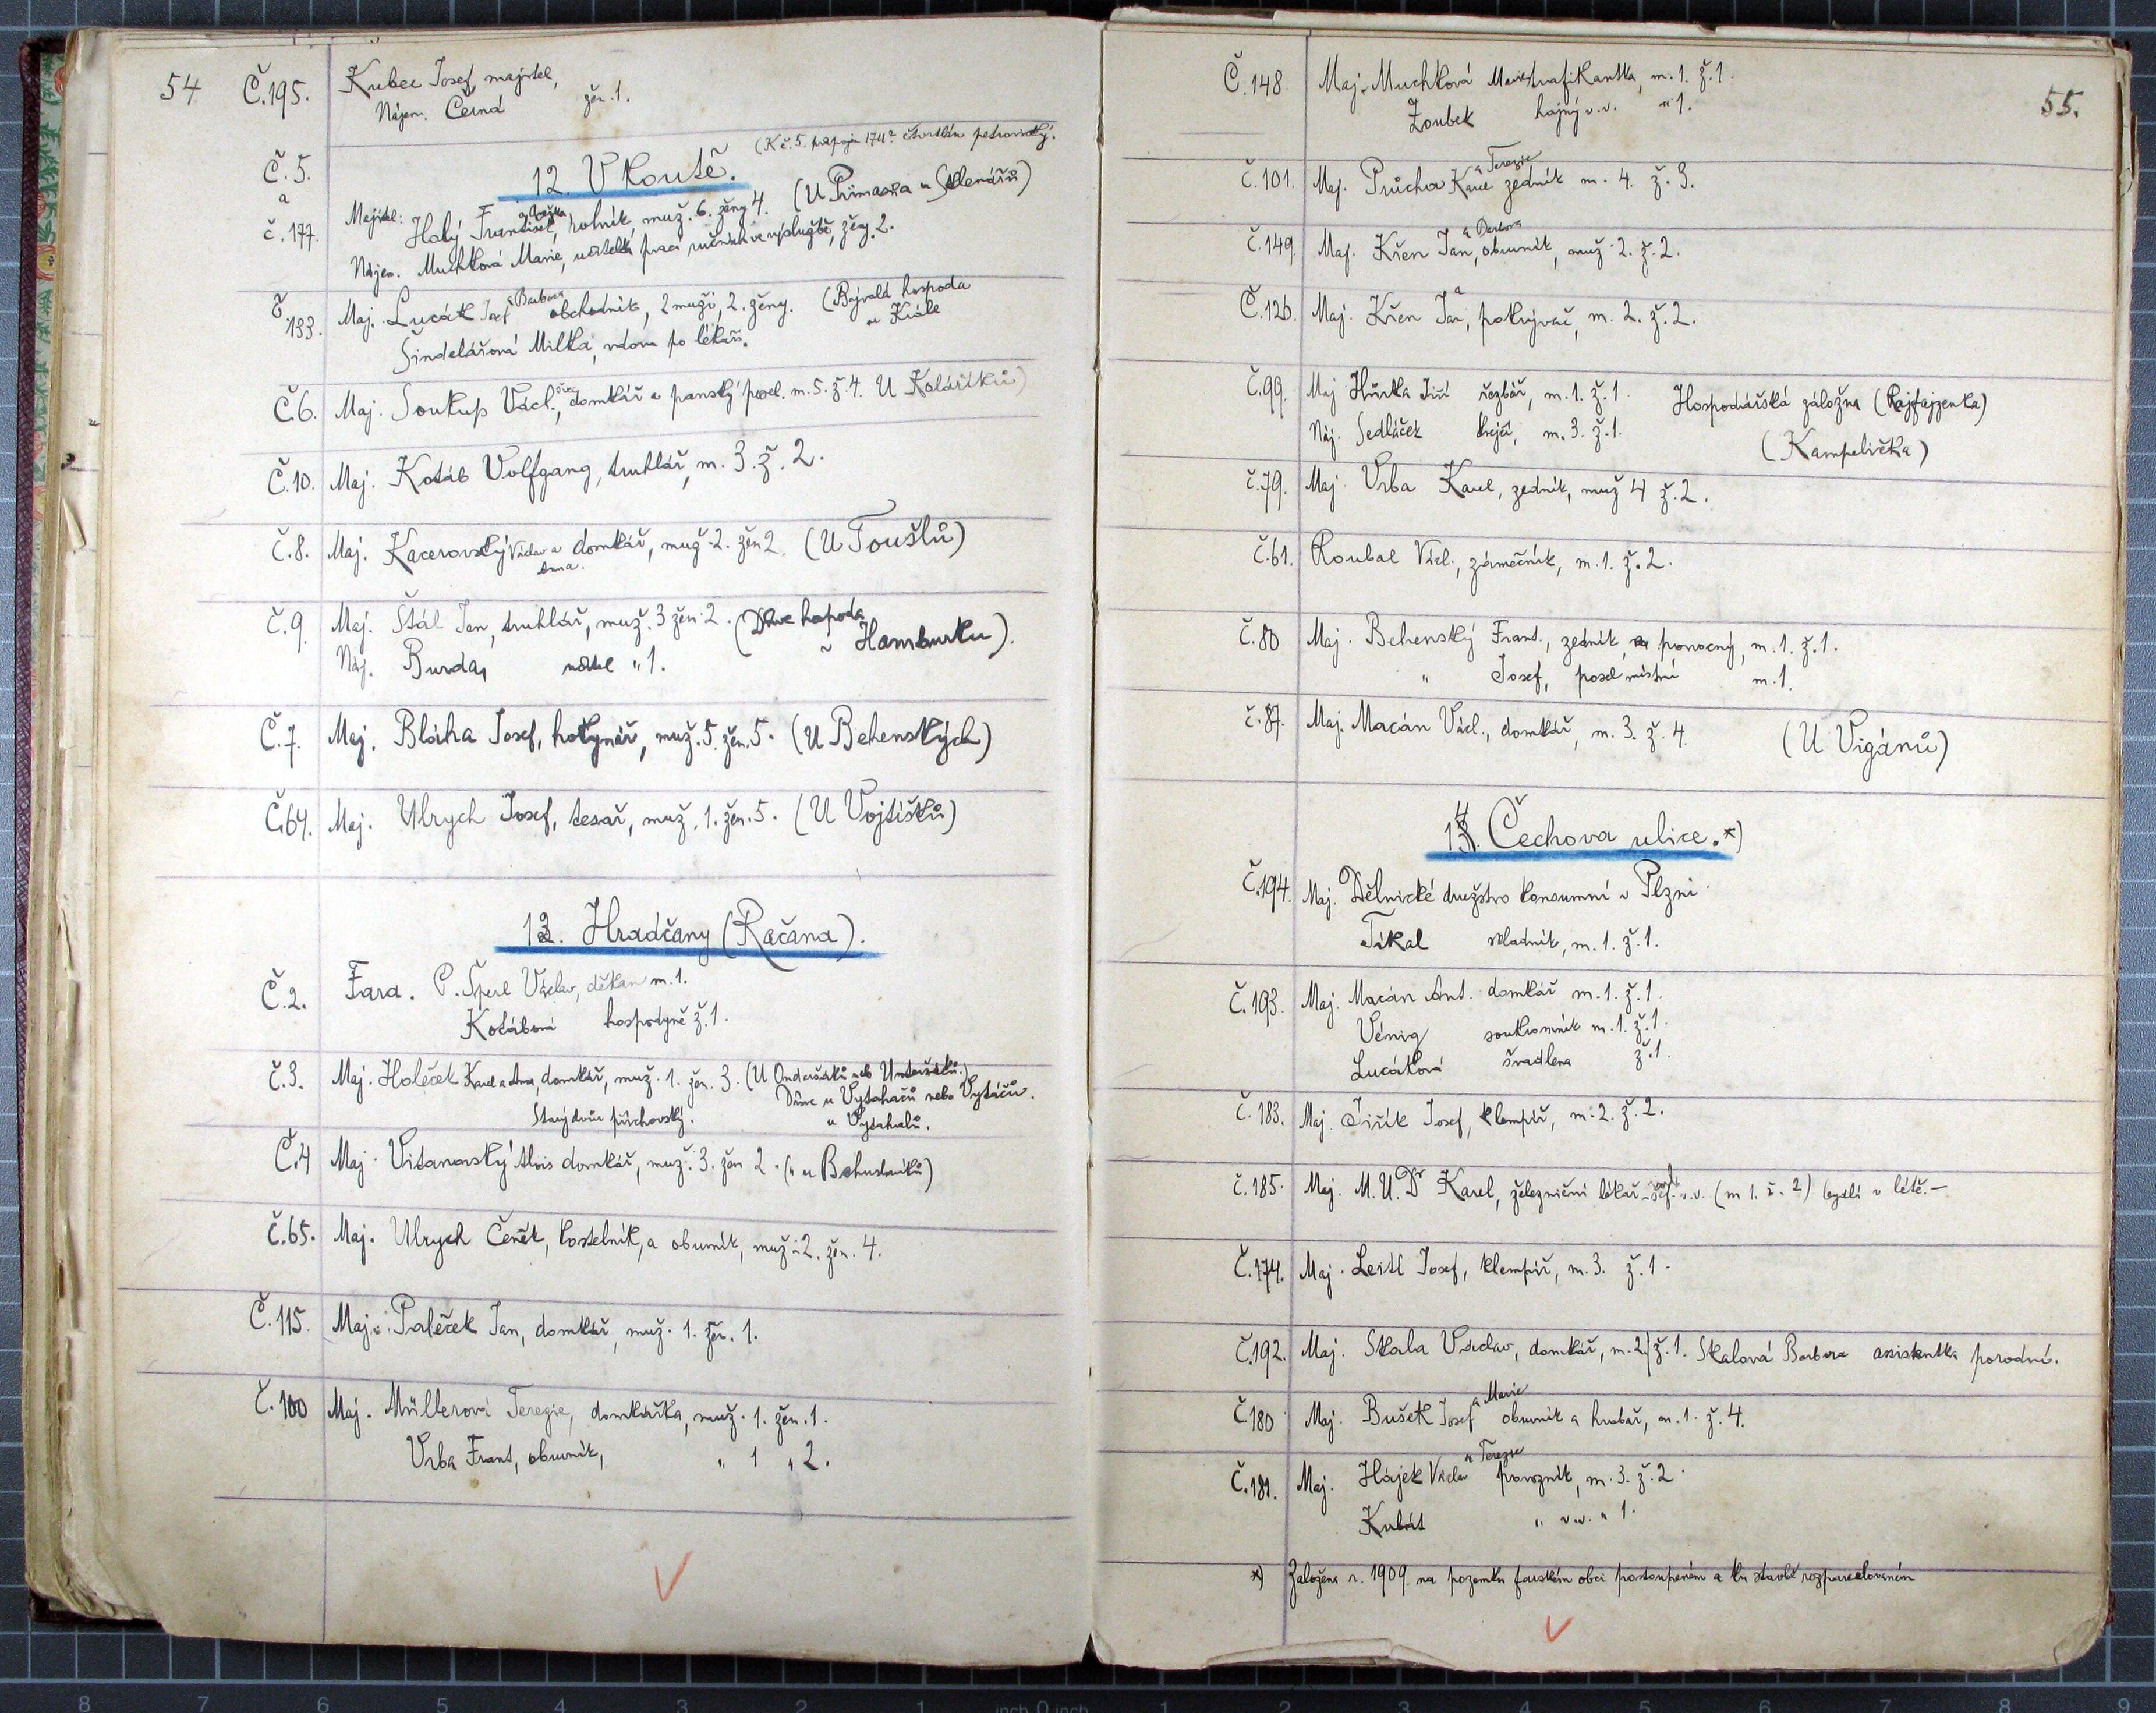 54
Č.195. Kubec Josef, majitel,
Nájem. Černá žen. 1.
(K č. 5. 1711
12. V koutě.
Č.5. a č.177. Majitel: Holý František, rolník, muž. 6. ženy 4. (U Primasa u Sklenářů)
Nájem. Muchková Marie, učitelka prací ručních ve výslužbě, ženy 2.
Č 133. Maj. Lucák Josef a Barbora obchodník, 2 muži, 2. ženy. (Bejvalá hospoda
u Krále
Šindelářová Milka, vdova po lékaři.
Č.6. Maj. Soukup Václ., domkář a panský posel. m. 5. ž. 4. U Kolářiků)
Č.10. Maj. Kotáb Volfgang, truhlář, m. 3. ž. 2.
Č.8. Maj. Kacerovský Václav a domkář, muž 2. žen 2. (U Toušlů)
Anna.
Č.9. Maj. Štál Jan, truhlář, muž. 3 žen 2. (Dříve hospoda
v Hamburku).
Náj. Burda, učitel „ 1.
Č.7. Maj. Bláha Josef, hokynář, muž. 5. žen. 5. (U Behenských)
Č.64. Maj. Ulrych Josef, tesař, muž. 1. žen. 5. (U Vojtíšků)
13. Hradčany (Račana).
Č.2. Fara. P. Šperl Václav, děkan m. 1.
Kotábová hospodyně ž. 1.
Č.3. Maj. Holeček Karel a Anna, domkář, muž. 1. žen. 3. (U Onderšíků neb Unteršíků.)
Dříve u Vytahačů nebo Vytáčů.
Starý dvůr příchovský. u Vytahalů.
Č.4 Maj. Vitanovský Alois domkář, muž. 3. žen 2. („ u Bohuslavíků)
Č.65. Maj. Ulrych Čeněk, kostelník, a obuvník, muž. 2. žen. 4.
Č.115. Maj. Paleček Jan, domkář, muž. 1. žen. 1.
Č.100 Maj. Müllerová Terezie, domkářka, muž. 1. žen. 1.
Vrba Frant, obuvník, „ 1 „ 2.
55.
Č.148. Maj. Muchková Marie trafikantka, m. 1. ž. 1.
Zoubek hajný v.v. „ 1.
a Terezie
Č.101. Maj. Průcha Karel zedník m. 4. ž. 3.
a Barbora
Č.149. Maj. Křen Jan, obuvník, muž 2. ž. 2.
Č.126. Maj. Křen Jan, pokrývač, m. 2. ž. 2.
Č.99. Maj Hůrka Jiří řezbář, m. 1. ž. 1. Hospodářská záložna (Rajfajzenka)
Náj. Sedláček krejčí, m. 3. ž. 1. (Kampelička)
Č.79. Maj. Vrba Karel, zedník, muž 4 ž. 2.
Č.61. Roubal Václ., zámečník, m. 1. ž. 2.
Č.80 Maj. Behenský Frant., zedník, a ponocný, m. 1. ž. 1.
„ Josef, posel místní m. 1.
Č.87. Maj. Macán Václ., domkář, m. 3. ž. 4. (U Vigánů)
14. Čechova ulice.*)
Č.194. Maj. Dělnické družstvo konsumní v Plzni
Tikal skladník, m. 1. ž. 1.
Č.193. Maj. Macán Ant. domkář m. 1. ž. 1.
Vénig soukromník m. 1. ž. 1.
Lucáková švadlena ž. 1.
Č.183. Maj. Jiřík Josef, klempíř, m. 2. ž. 2.
Č.185. Maj. M.U.Dr Karel, železniční lékař v.v. (m 1. ž. 2) bydlí v létě.—
Č.174. Maj. Leitl Josef, klempíř, m. 3. ž. 1.
Č.192. Maj. Skala Václav, domkář, m. 2. ž. 1. Skalová Barbora assistentka porodní.
a Marie
Č180 Maj. Bušek Josef obuvník a hrobař, m. 1. ž. 4.
a Terezie
Č.181. Maj. Hájek Václav provazník, m. 3. ž. 2.
Kubát „ v.v. „ 1.
*) Založena r. 1909. na pozemku farském obci postoupeném a ku stavbě rozparcelovaném